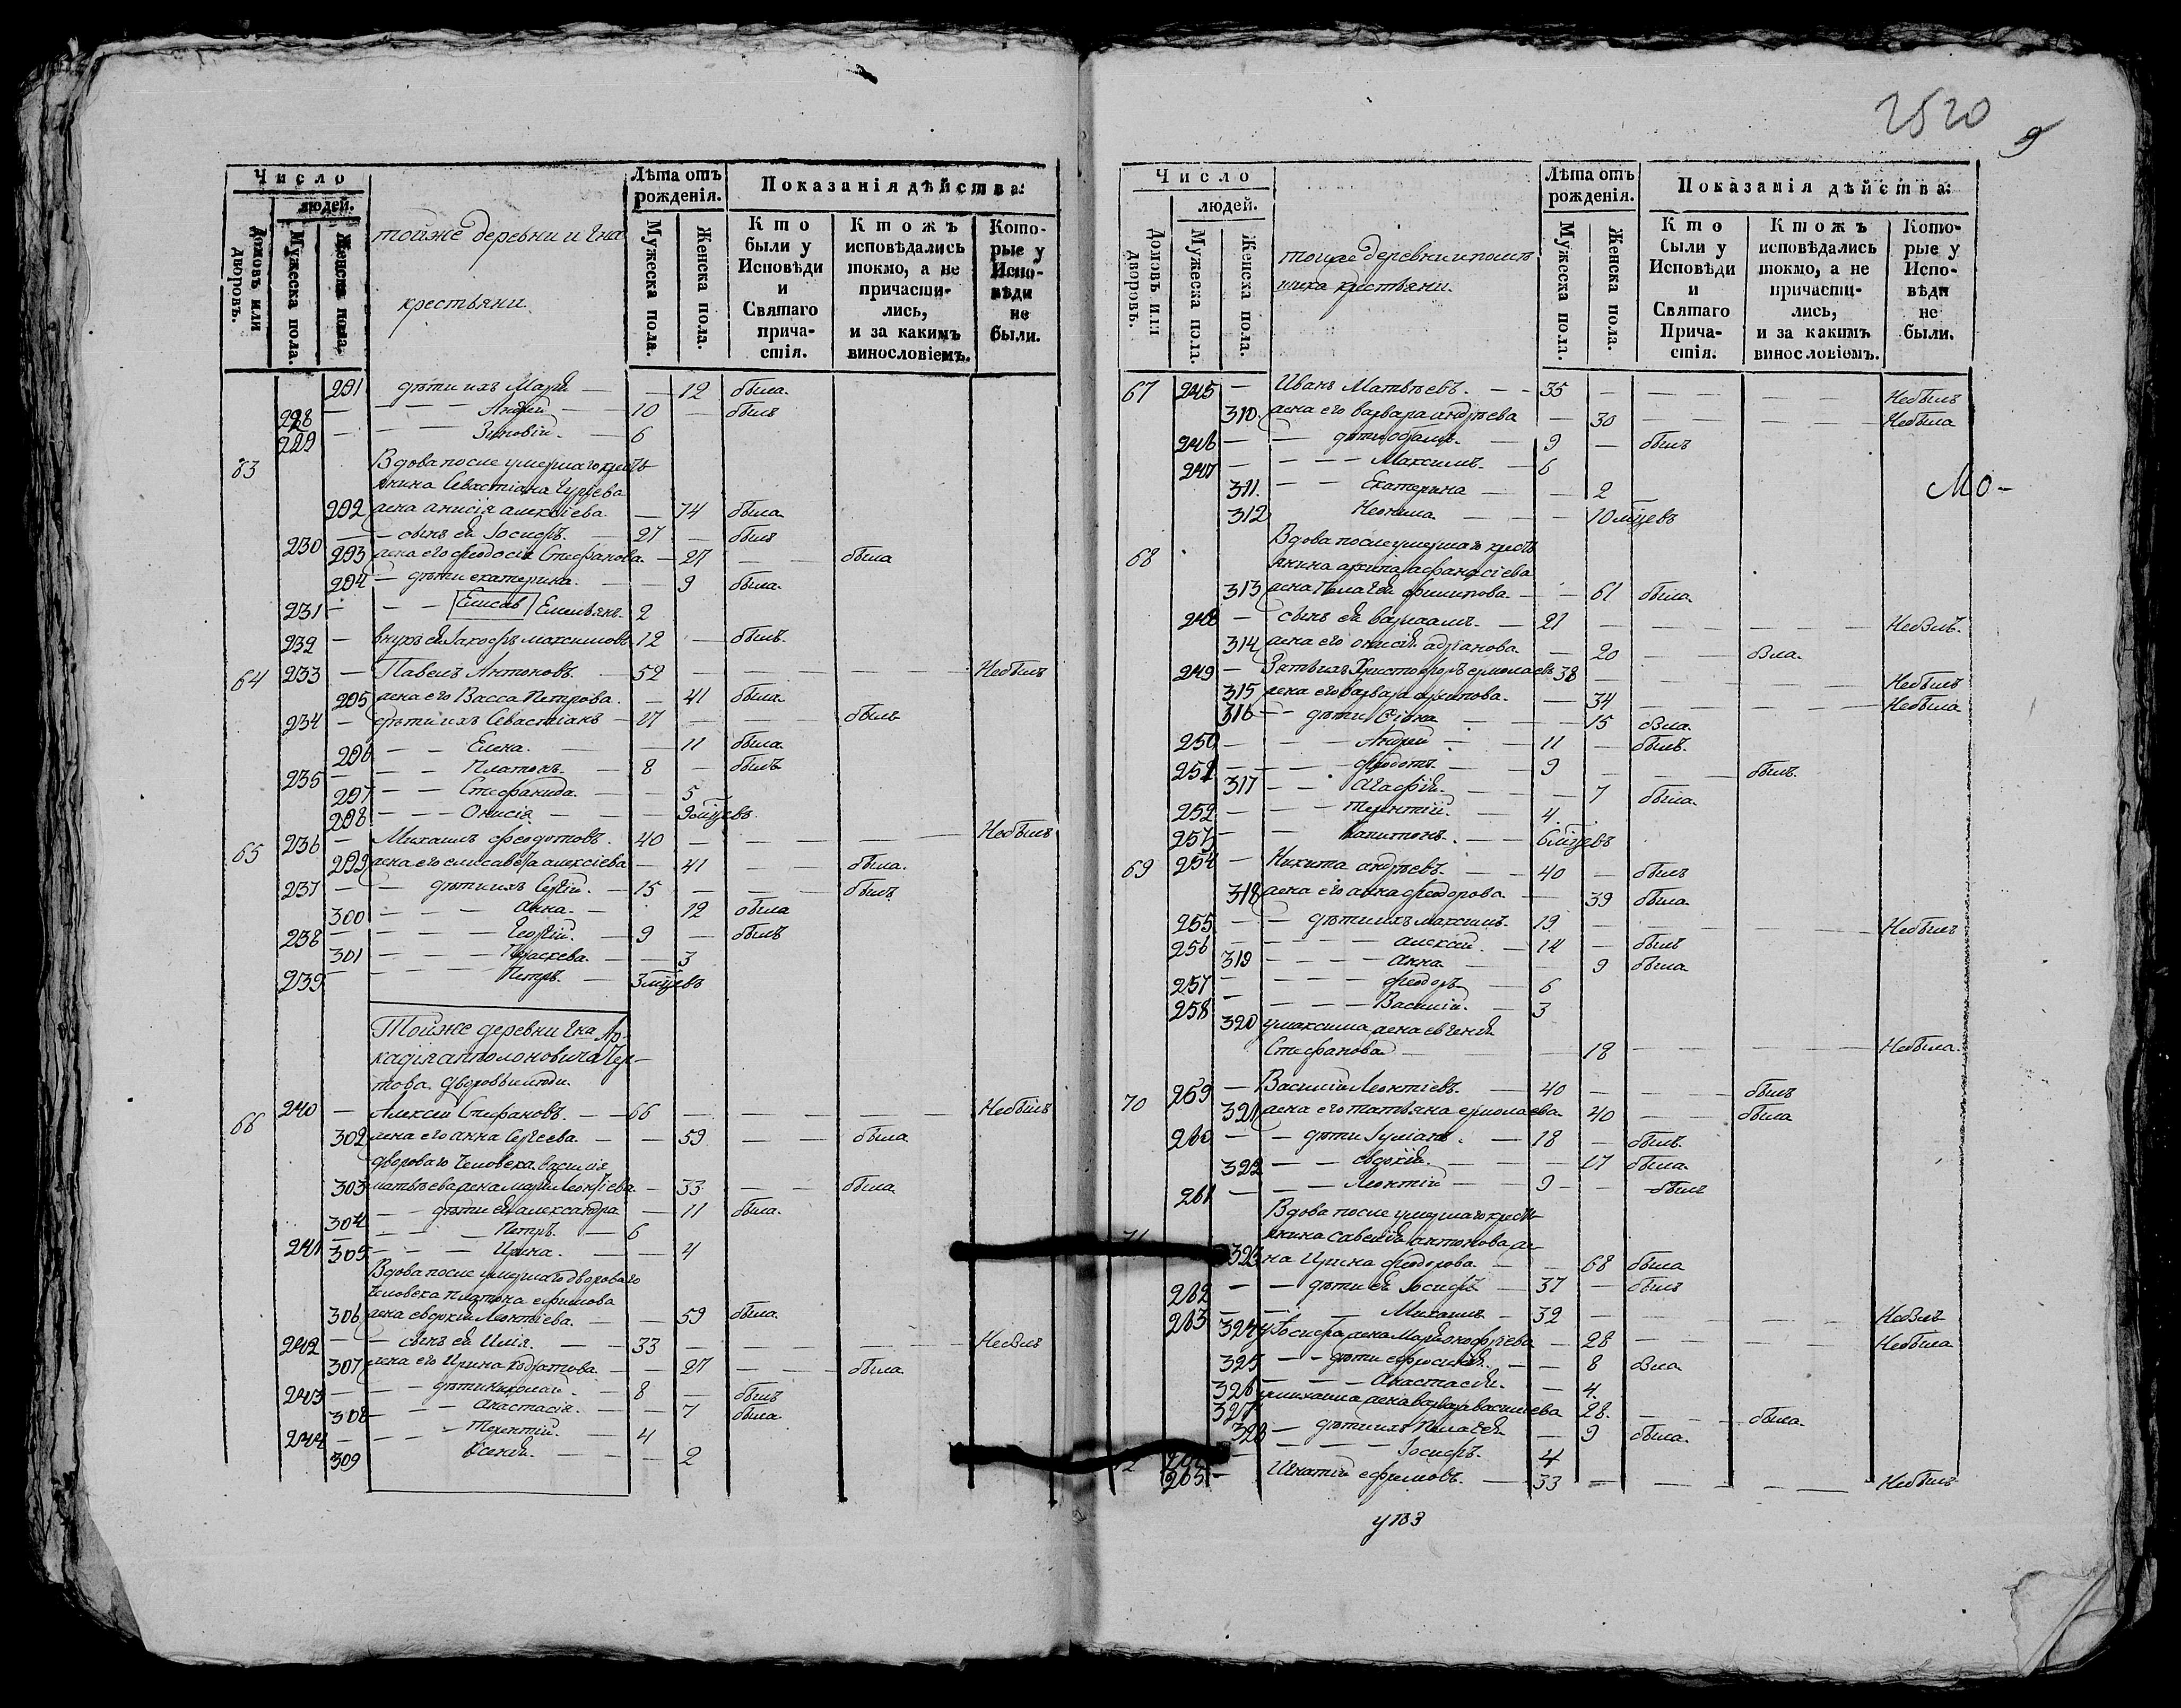 Число
людей.
Домовъ или дворовъ.
Мужеска пола.
Женска пола.
тойже деревни и Гна
крестьяни
Лѣта отъ рожденія.
Мужеска пола.
Женска пола.
Показанія дѣйства:
Кто были у Исповѣди и Святаго причастія.
Ктожъ исповѣдались токмо, а не причастились, и за какимъ винословіемъ.
Которые у Исповѣди не были.
291 дѣти ихъ Марія — — 12 была
228 — — — Андрей — 10 — былъ
229 — — Зиновій — 6
63 Вдова после умершаго кресть
янина Севастіана Гурьева
292 жена анисія алексіева — 74 была
230 — сынъ ей Іосифъ — 27 — былъ
293 жена его феодосія Стефанова — 27 — — была
294 — дѣти екатерина — — 9 была
231 — — — Елисав Емельянъ 2
232 — внукъ ей максимовъ 12 — былъ
64 233 — Павелъ Антоновъ — 52 — — — Небылъ
295 жена его Васса Петрова — 41 была
234 — дѣти ихъ Севастіанъ — 17 — — былъ
296 — — Елена — — 11 была
235 — — — Платонъ — 8 — былъ
297 — — Стефанида — — 5
298 — — Онисія — — 9 мцевъ
65 236 — Михаилъ феодотовъ — 40 — — — Небылъ
299 жена его елисавета алексіева — 41 — — была
237 — — дѣти ихъ Сергій — 15 — — — былъ
300 — — — анна — 12 была
238 — — — Георгій — 9 — былъ
301 — — — Параскева — — 3
239 — — — Петръ — 3 мцевъ
Тойже деревни Гна Ар-
кадія апполоновича Чер-
това дворовыи люди
66 240 — Алексей Стефановъ — — 66 — — — — Небылъ
302 жена его анна Сергеева — — 59 — — была
двороваго человека василія
303 матвѣева жена марія леонтіева — 33 — — была
304 — — дѣти ей александра — 11 была
241 — — — Петръ — 6
305 — — — Ирина — — 4
Вдова после умершаго двороваго
человека платона ефимова
306 жена евдокія леонтіева — — 59 была
242 — — сынъ ей Илія — — 33 — — — — Небылъ
307 жена его Ирина кодратова — — 27 — — была
243 — — — дѣти николай — 8 — былъ
308 — — анастасія — — 7 была
244 — — — Терентій — 4
309 Ксенія — — — 2
2520
9
Число
людей.
Домовъ или дворовъ.
Мужеска пола.
Женска пола.
тойже деревни и помѣщ
ника крестьяни
Лѣта отъ рожденія.
Мужеска пола.
Женска пола.
Показанія дѣйства:
Кто были у Исповѣди и Святаго Причастія.
Ктожъ исповѣдались токмо, а не причастились, и за какимъ винословіемъ.
Которые у Исповѣди не были.
67 245 — Иванъ Матвѣевъ — — 35 — — — — Небылъ
310 жена его варвара андреева — 30 — — — Небыла
246 — — дѣти — 9 — былъ
247 — — — — Максимъ — 6
311 — — Екатерина — — 2
Мо-
312 Неонила — — — 10 мцевъ
68 Вдова после умершаго кресть
янина архипа афанасіева
313 жена Пелагея филипова — — 61 была
248 — сынъ ей варлаамъ — 21 — — — — Небылъ
314 жена его онисія адріанова — 20 — — была
249 — Зять ихъ Христофоръ ермолаевъ 38 — — — Небылъ
315 жена его варвара архипова — 34 — — — Небыла
316 — — дѣти — — — 15 была
250 — — — Андрей — 11 — былъ
251 — — — феодотъ — 9 — — — былъ
317 — — агафія — — — 7 была
252 — — — терентій — 4
253 — — Капитонъ — — 6 мцевъ
69 254 — Никита андреевъ — — 40 — былъ
318 жена его анна феодорова — 39 была
255 — — дѣти ихъ максимъ — 19 — — — — Небылъ
256 — — — — алексій — 14 — былъ
319 — — — — анна — — 9 была
257 — — — — феодоръ — 6
258 — — — — Василій — 3
320 у максима жена евгенія
Стефанова — — 18 — — — — Небыла
70 259 — Василій Леонтіевъ — 40 — — — былъ
321 жена его татьяна ермолаева — 40 — — была
260 — — дѣти Іуліанъ — 18 — былъ
322 — — евдокія — — — 17 была
261 — — — Леонтій — — 9 — — былъ
71 Вдова после умершаго кресть
янина савелія антонова же-
323 на Ирина феодорова — — 68 была
262 — — дѣти ей Іосифъ — 37 — былъ
263 — — — Михаилъ — 32 — — — — Небылъ
324 у Іосифа жена Марія онофріева — 28 — — — Небыла
325 — — дѣти ефросинія — — 8 была
326 — — — Анастасія — — 4
327 у михаила жена варвара васильева 28 — — — была
328 — дѣти ихъ Пелагея — 9 была
— — — Іосифъ — 4
265 — Игнатій ефимовъ — 33 — — — — Небылъ